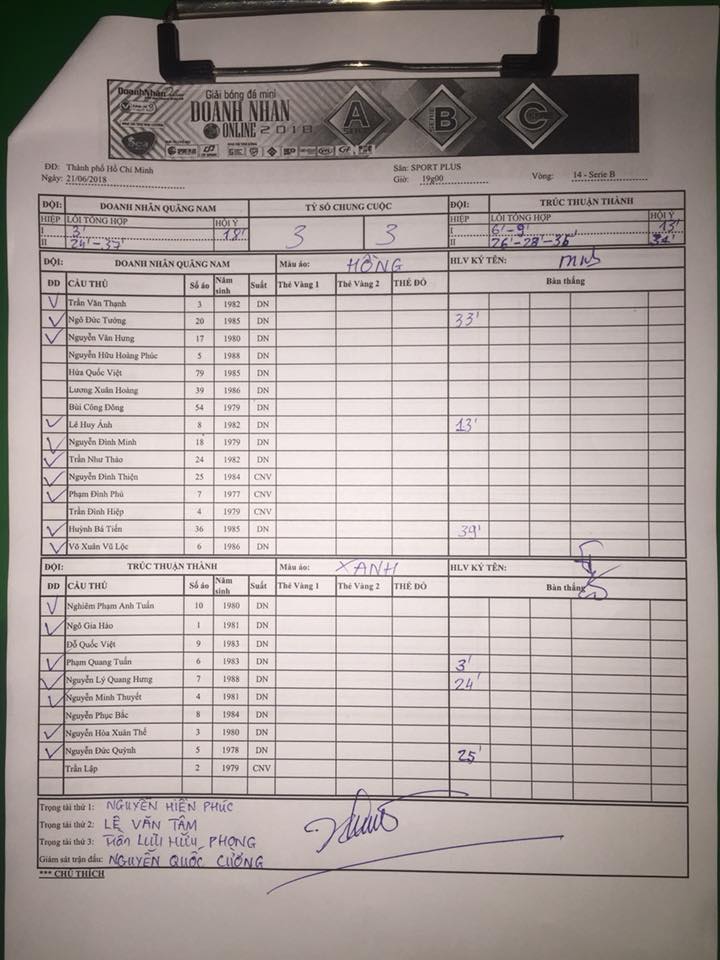 DoanhNhân
Giải bóng đá mini
DOANH NHAN
ONLINE 2018
A B C
ĐĐ: Thành phố Hồ Chí Minh Sân: SPORT PLUS
Ngày: 21/06/2018 Giờ: 19g00 Vòng: 14 - Serie B
ĐỘI: DOANH NHÂN QUẢNG NAM TỶ SỐ CHUNG CUỘC ĐỘI: TRÚC THUẬN THÀNH
HIỆP LỖI TỔNG HỢP HỘI Ý 3 3 HIỆP LỖI TỔNG HỢP HỘI Ý
I 3' 18' I 6'-9' 13'
II 24'-37' II 26'-28'-36' 34'
ĐỘI: DOANH NHÂN QUẢNG NAM Màu áo: HỒNG HLV KÝ TÊN:
ĐD CẦU THỦ Số áo Năm sinh Suất Thẻ Vàng 1 Thẻ Vàng 2 THẺ ĐỎ Bàn thắng
Trần Văn Thạnh 3 1982 DN
Ngô Đức Tường 20 1985 DN 33'
Nguyễn Văn Hưng 17 1980 DN
Nguyễn Hữu Hoàng Phúc 5 1988 DN
Hứa Quốc Việt 79 1985 DN
Lương Xuân Hoàng 39 1986 DN
Bùi Công Đông 54 1979 DN
Lê Huy Ánh 8 1982 DN 13'
Nguyễn Đình Minh 18 1979 DN
Trần Như Thảo 24 1982 DN
Nguyễn Đình Thiện 25 1984 CNV
Phạm Đình Phú 7 1977 CNV
Trần Đình Hiệp 4 1979 CNV
Huỳnh Bá Tiến 36 1985 DN 39'
Võ Xuân Vũ Lộc 6 1986 DN
ĐỘI: TRÚC THUẬN THÀNH Màu áo: XANH HLV KÝ TÊN:
ĐD CẦU THỦ Số áo Năm sinh Suất Thẻ Vàng 1 Thẻ Vàng 2 THẺ ĐỎ Bàn thắng
Nghiêm Phạm Anh Tuấn 10 1980 DN
Ngô Gia Hào 1 1981 DN
Đỗ Quốc Việt 9 1983 DN
Phạm Quang Tuấn 6 1983 DN 3'
Nguyễn Lý Quang Hưng 7 1988 DN 24'
Nguyễn Minh Thuyết 4 1981 DN
Nguyễn Phục Bắc 8 1984 DN
Nguyễn Hòa Xuân Thể 3 1980 DN
Nguyễn Đức Quỳnh 5 1978 DN 25'
Trần Lập 2 1979 CNV
Trọng tài thứ 1: NGUYỄN HIỀN PHÚC
Trọng tài thứ 2: LÊ VĂN TÂM
Trọng tài thứ 3: TRẦN LƯU HỮU PHONG
Giám sát trận đấu: NGUYỄN QUỐC CƯỜNG
*** CHÚ THÍCH